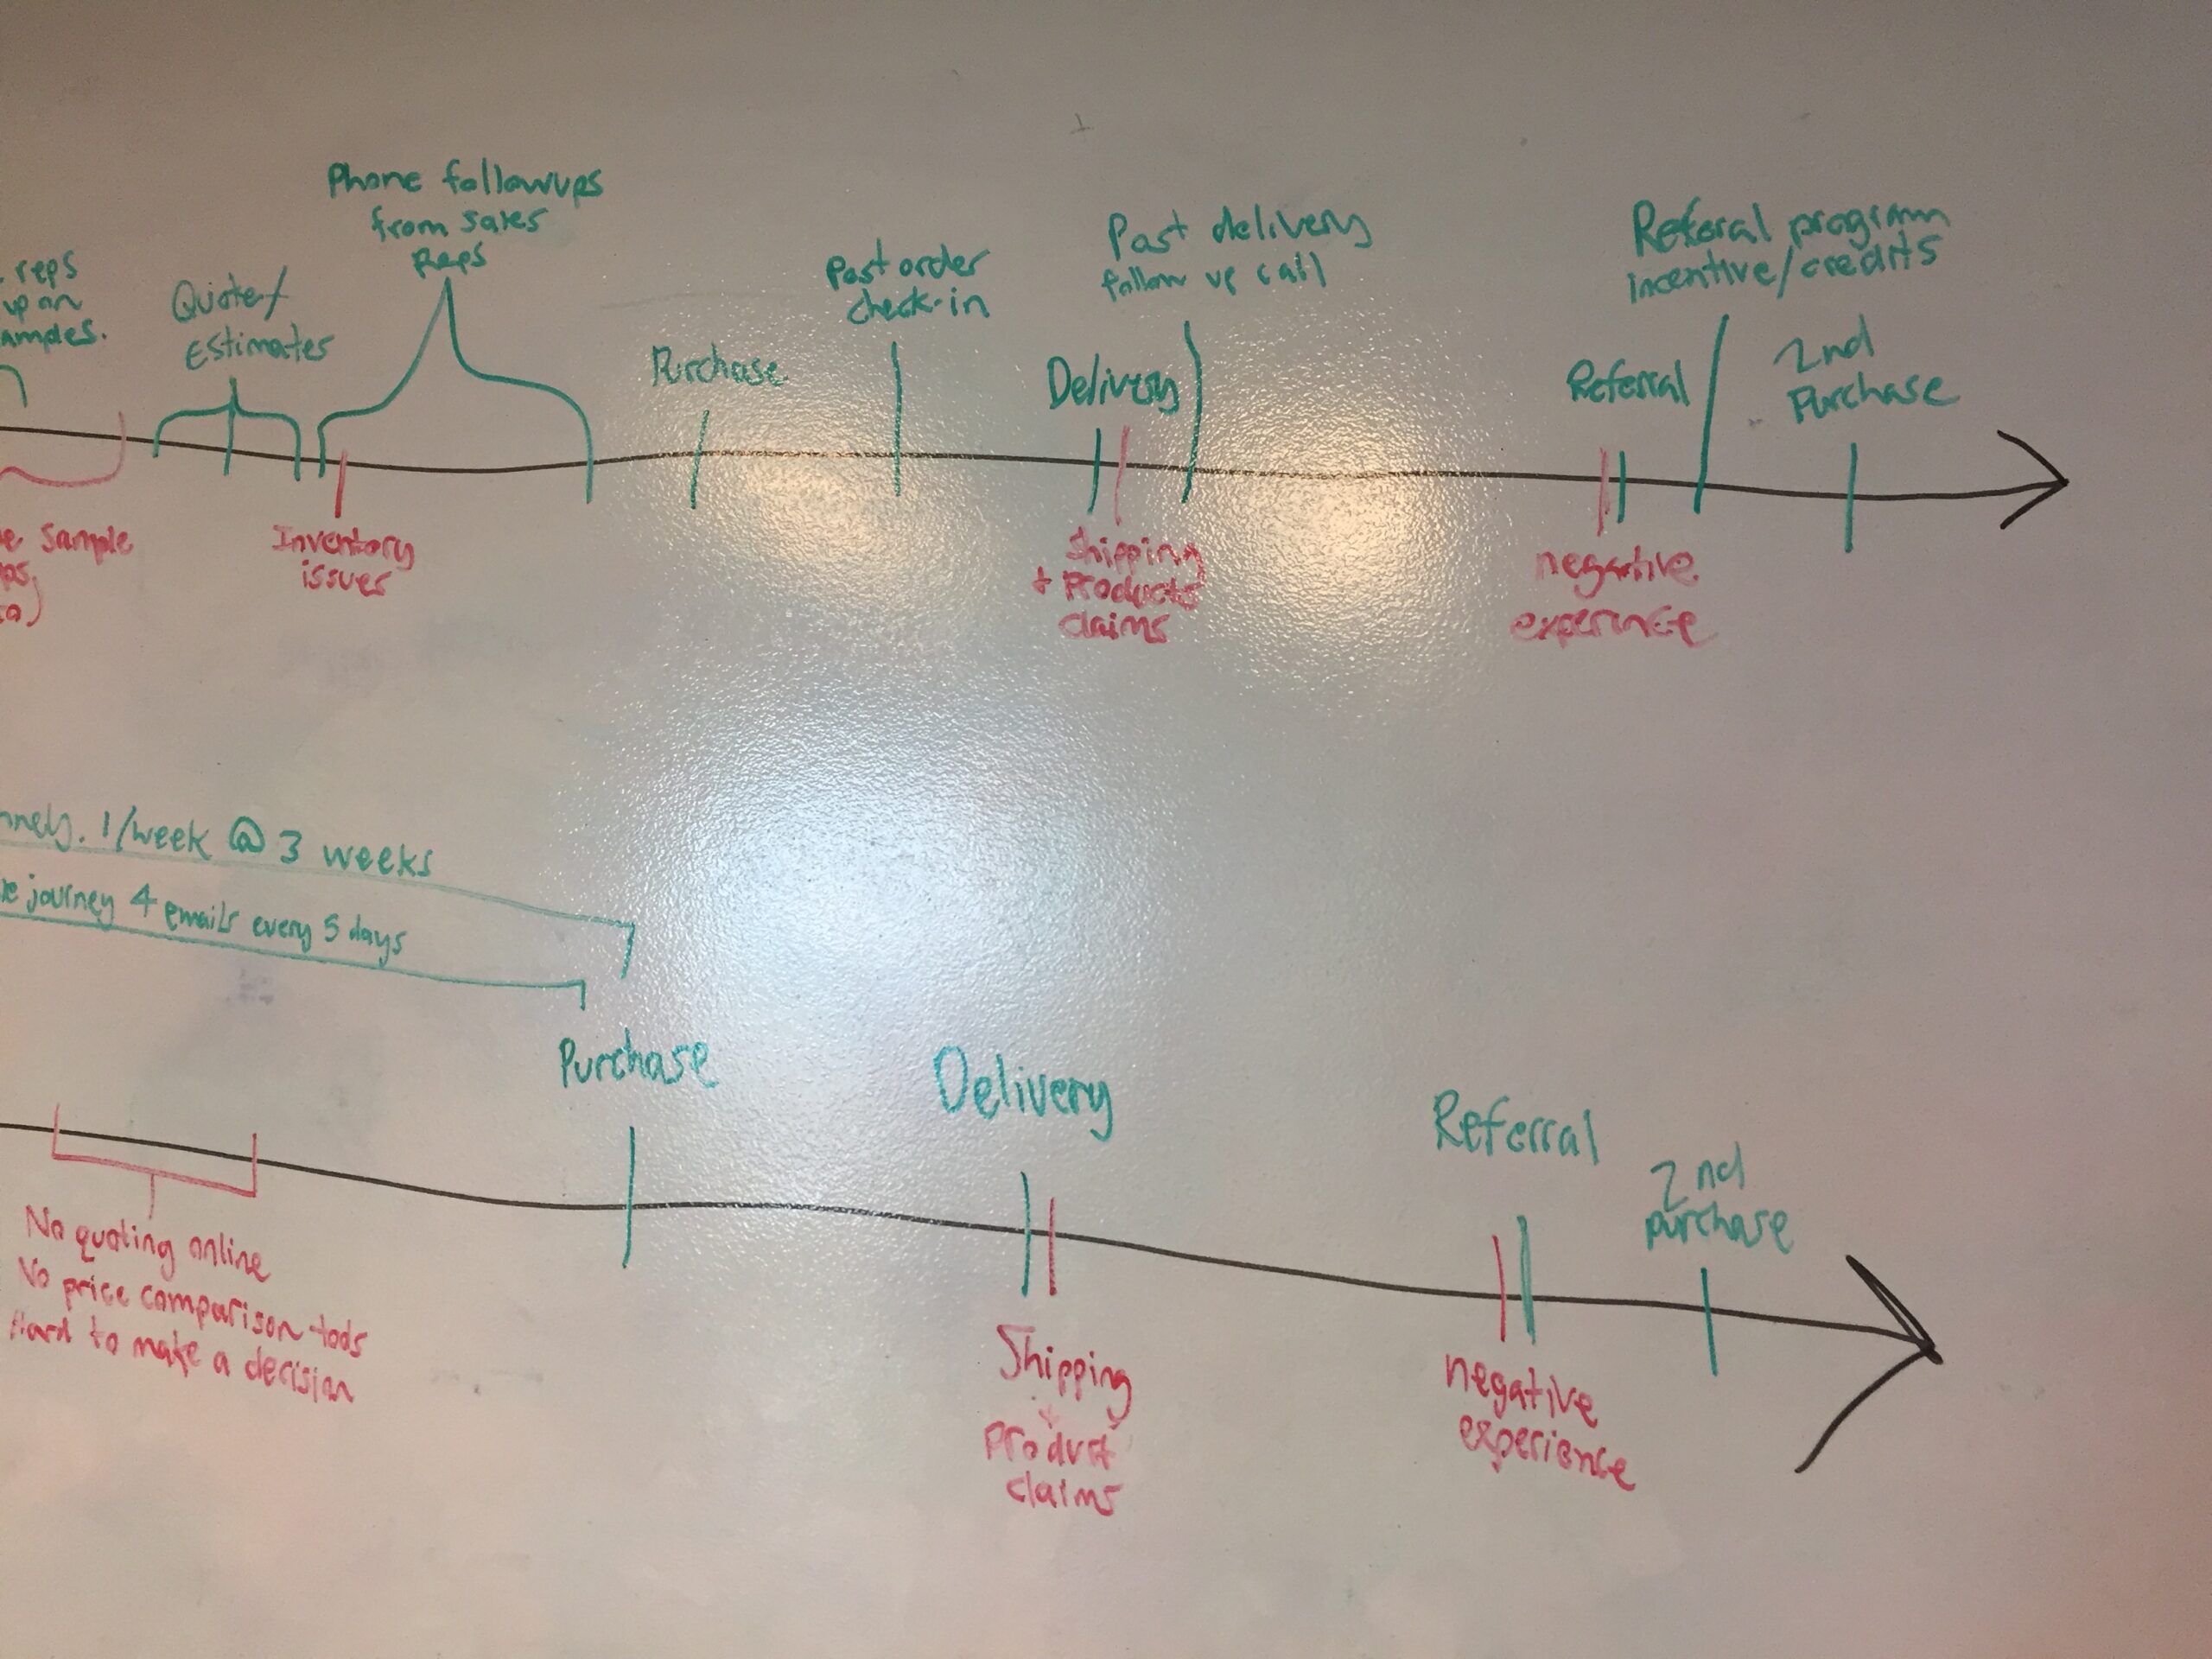 reps
up on
Quote/
Estimates
Phone followups
from sales
Reps
Purchase
Post order
check-in
Delivery
Post delivery
follow up call
Referral
Referal program
incentive/credits
2nd
Purchase
Sample
Inventory
issues
Shipping
+ Products
claims
negative
experince
1/week @ 3 weeks
journey 4 emails every 5 days
Purchase
Delivery
Referral
2nd
purchase
No quoting online
No price comparison tools
Hard to make a decision
Shipping
+
Product
claims
negative
experience